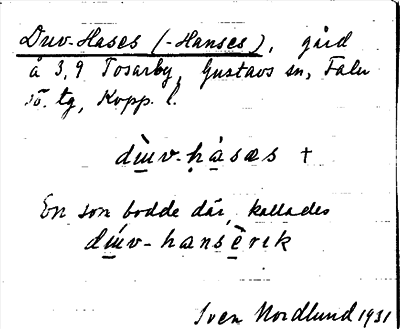 Duv-Hases (-Hanses), gård
å 3,9 Tosarby, Gustavs sn, Falu
sö. tg, Kopp. l.
dùv-hàsæs †
En som bodde där, kallades
dúv-hansèrɩk
Sven Nordlund 1931